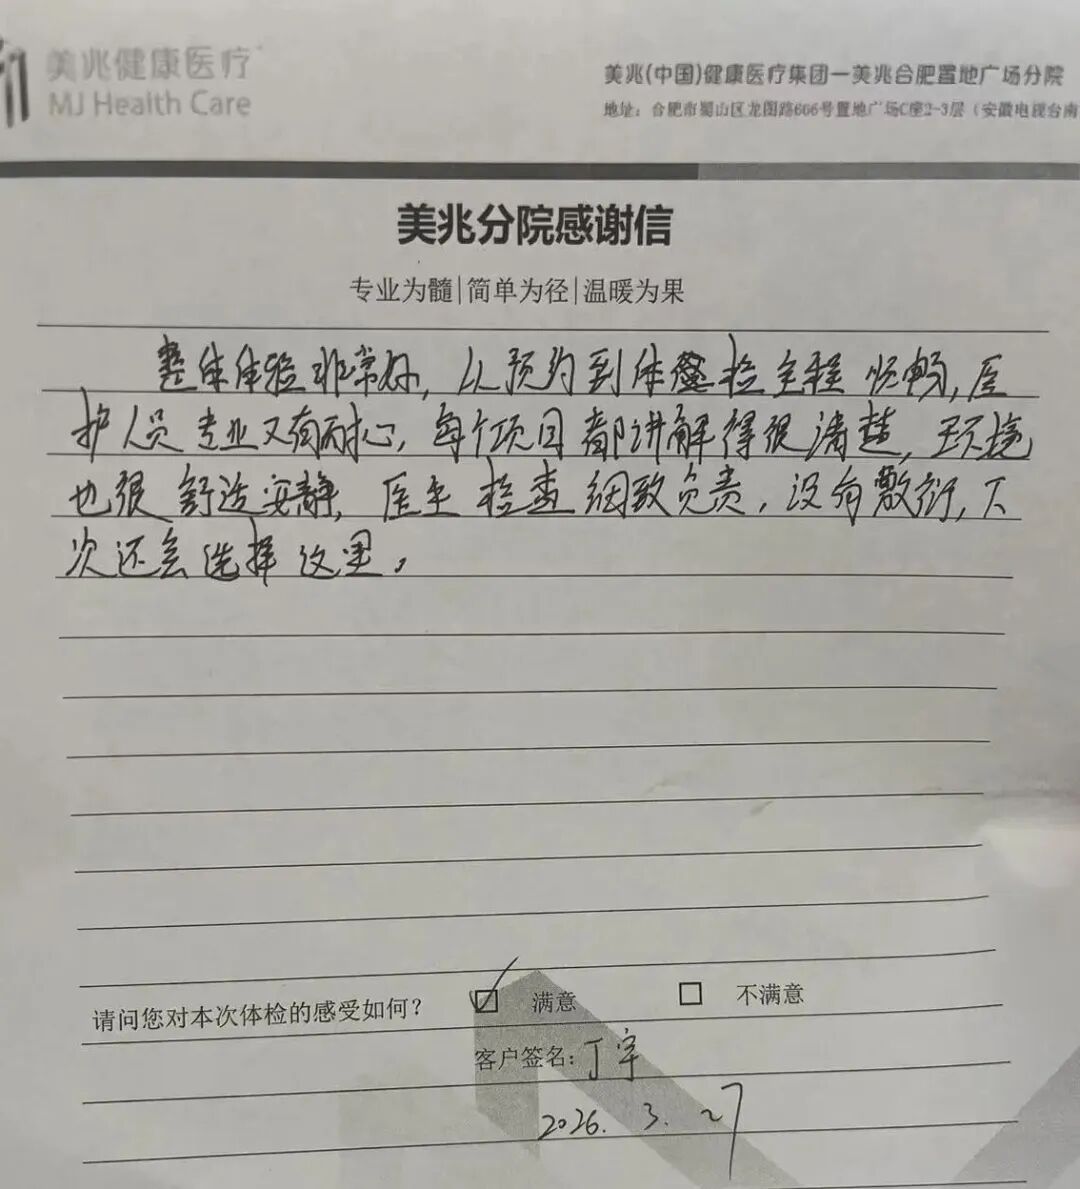 美兆健康医疗
MJ Health Care
美兆(中国)健康医疗集团—美兆合肥置地广场分院
地址：合肥市蜀山区龙图路666号置地广场C座2-3层（安徽电视台南
美兆分院感谢信
专业为髓|简单为径|温暖为果
整体体验非常好，从预约到体检全程顺畅，医
护人员专业又有耐心，每个项目都讲解得很清楚，环境
也很舒适安静，医生检查细致负责，没有敷衍，下
次还会选择这里。
请问您对本次体检的感受如何？ ☑ 满意 □ 不满意
客户签名：丁宇
2026.3.27